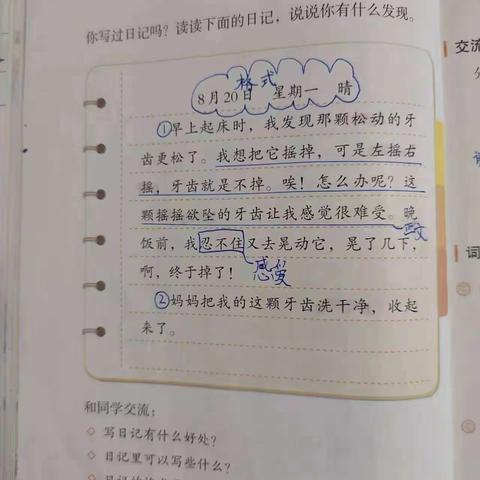 你写过日记吗？读读下面的日记，说说你有什么发现。
格式
8月20日 星期一 晴
①早上起床时，我发现那颗松动的牙
齿更松了。我想把它摇掉，可是左摇右
摇，牙齿就是不掉。唉！怎么办呢？这
颗摇摇欲坠的牙齿让我感觉很难受。晚
饭前，我忍不住又去晃动它，晃了几下，
啊，终于掉了！
感受
②妈妈把我的这颗牙齿洗干净，收起
来了。
和同学交流：
◇ 写日记有什么好处？
◇ 日记里可以写些什么？
交流
词